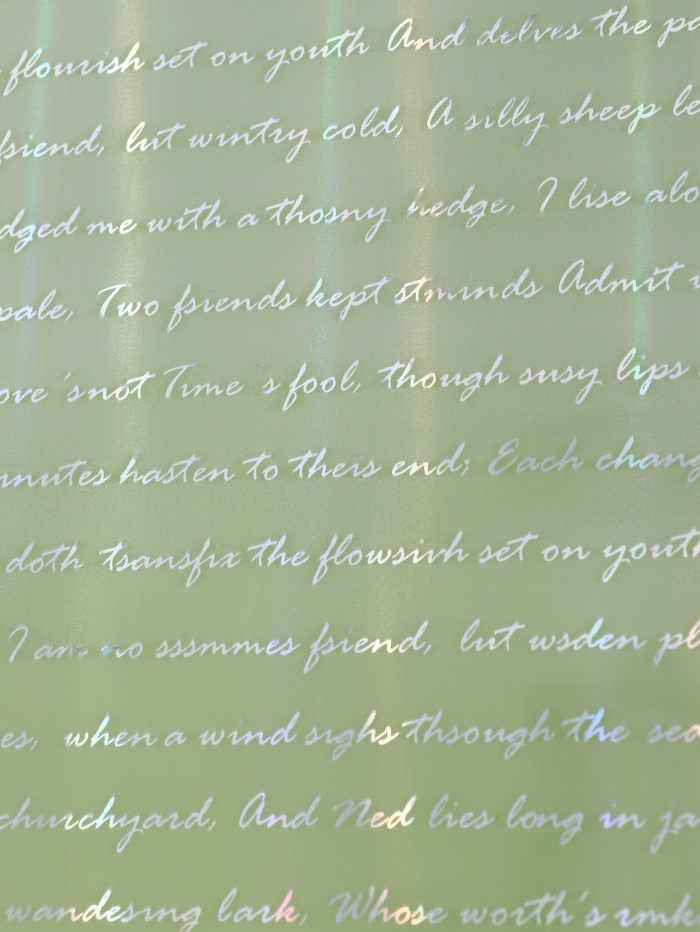 flourish set on youth And delves the pa
fsiend, lut wintry cold, A silly sheep le
dged me with a thosny hedge, I lise alo
pale, Two fsiends kept Admit
ove 'snot Time 's fool, though susy lips
inutes hasten to theis end; Each chang
doth tsansfix the flowsivh set on youth
I am no sssmmes fsiend, lut wsden pl
es, when a wind sighs thsough the sea
churchyard, And Ned lies long in ja
wandesing lark, Whose worth's